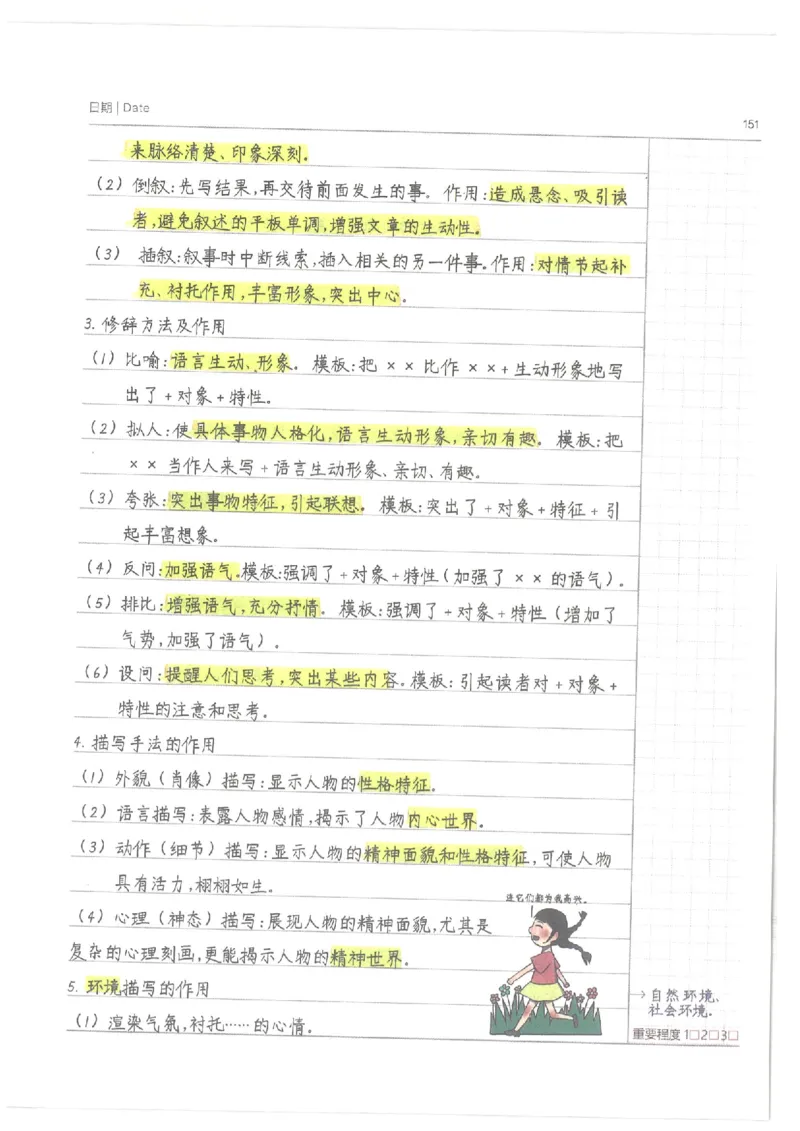 日期 | Date
151
来脉络清楚、印象深刻。
(2) 倒叙:先写结果,再交待前面发生的事。作用:造成悬念、吸引读
者,避免叙述的平板单调,增强文章的生动性。
(3) 插叙:叙事时中断线索,插入相关的另一件事。作用:对情节起补
充、衬托作用,丰富形象,突出中心。
3. 修辞方法及作用
(1) 比喻:语言生动、形象。模板:把 × × 比作 × × + 生动形象地写
出了 + 对象 + 特性。
(2) 拟人:使具体事物人格化,语言生动形象,亲切有趣。模板:把
× × 当作人来写 + 语言生动形象、亲切、有趣。
(3) 夸张:突出事物特征,引起联想。模板:突出了 + 对象 + 特征 + 引
起丰富想象。
(4) 反问:加强语气。模板:强调了 + 对象 + 特性(加强了 × × 的语气)。
(5) 排比:增强语气,充分抒情。模板:强调了 + 对象 + 特性(增加了
气势,加强了语气)。
(6) 设问:提醒人们思考,突出某些内容。模板:引起读者对 + 对象 +
特性的注意和思考。
4. 描写手法的作用
(1) 外貌(肖像)描写:显示人物的性格特征。
(2) 语言描写:表露人物感情,揭示了人物内心世界。
(3) 动作(细节)描写:显示人物的精神面貌和性格特征,可使人物
具有活力,栩栩如生。
连它们都为我高兴。
(4) 心理(神态)描写:展现人物的精神面貌,尤其是
复杂的心理刻画,更能揭示人物的精神世界。
5. 环境描写的作用
→ 自然环境、
社会环境。
(1) 渲染气氛,衬托……的心情。
重要程度 1□2□3□